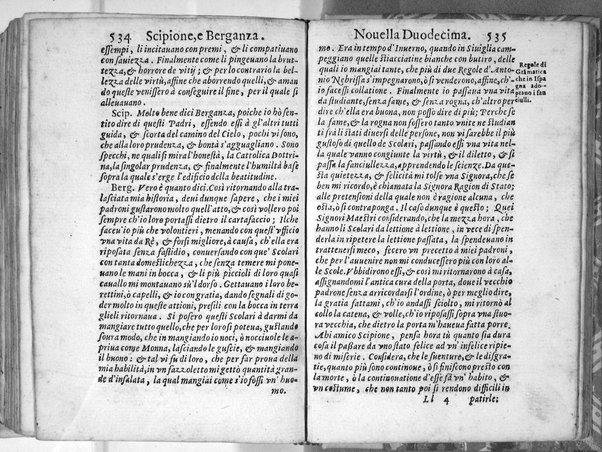 534 Scipione, e Berganza.
essempi, li incitauano con premi, & li compatiuano
con sauiezza. Finalmente come li pingeuano la brut
tezza, & horrore de vitij; & per lo contrario la bel
lezza delle virtù, affine che aborrendo quelli, & aman
do queste venissero à conseguire il fine, per il quale si
alleuauano.
Scip. Molto bene dici Berganza, poiche io hò sen-
tito dire di questi Padri, essendo essi à gl'altri tutti
guida, & scorta del camino del Cielo, pochi vi sono,
che alla loro prudenza, & bontà s'agguaglino. Sono
specchi, ne quali si mira l'honestà, la Cattolica Dottri
na, la singolar prudenza, & finalmente l'humiltà base
sopra la quale s'erge l'edificio della beatitudine.
Berg. Vero è quanto dici. Così ritornando alla tra-
lasciata mia historia, deui dunque sapere, che i miei
padroni gustarono molto quell'atto, & così vollero poi
sempre ch'io loro portassi dietro il cartafaccio; Il che
faceu'io più che volontieri, menando con quest'vfficio
vna vita da Rè, & forsi migliore, à causa, ch'ella era
riposata senza fastidio, conuersando con que' Scolari
con tanta domestichezza, che senza temere mi pone-
uano le mani in bocca, & li più piccioli di loro quasi
cauallo mi montauano sù'l dorso. Gettauano i loro be-
rettini, ò capelli, & io con gratia, dando segnali di go-
der molto in queste attioni, presili con la bocca in terra
glieli ritornaua. Si posero questi Scolari à darmi da
mangiare tutto quello, che per loro si poteua, gustando
soura modo, che in mangiando io noci, ò nocciuole le a-
priua come Monna, lasciando le guscie, & mangiando
il buono: & tal vi fu di loro, che per far prona della
mia habilità, in vn fazzoletto mi gettò quantità gran-
de d'insalata, la qual mangiai come s'io fossi vn' huo-
mo.
Nouella Duodecima. 535
mo. Era in tempo d'Inuerno, quando in Siuiglia cam-
peggiano quelle stiacciatine bianche con butiro, delle
quali io mangiai tante, che più di due Regole d'Anto-
nio Nebrissa s'impegnarono, ò si venderono, affine, ch'
io facessi collatione. Finalmente io passaua vna vita
da studiante, senza fame, & senza rogna, ch'altro per
dire ch'ella era buona, non posso dire di più; Perche se
la fame, & la rogna non fossero tanto vnite ne studian
ti frà li stati diuersi delle persone, non vi sarebbe il più
gustoso di quello de Scolari, passando essi vna vita nel-
la quale vanno congiunte la virtù, & il diletto, & si
passa allegramente, apprendendo le scienze. Da que-
sta quietezza, & felicità mi tolse vna Signora, che se
ben mi ricordo, è chiamata la Signora Ragion di Stato;
alle pretensioni della quale non è ragione alcuna, che
osta, ò si contraponga. Il caso dunque è questo; Quei
Signori Maestri considerando, che la mezza hora, che
hanno li Scolari da lettione à lettione, in vece di spen-
derla in ripetere la lettione passata, la spendeuano in
trattenersi meco, fecero vn precetto à miei padroni,
che per l'auuenire non mi conducessero più con loro al-
le Scole. Vbbidirono essi, & così mi ritornarono à casa,
assignandomi l'antica cura della porta, doue il vecchio
padrone senza arricordarsi l'ordine, ò per meglio dire
la gratia fattami, ch'io andassi sciolto, mi ritornò al
collo la catena, & volle, ch'io riposassi sopra vna stuo-
ra vecchia, che dietro la porta m'haueua fatta porre.
Ahi amico Scipione, pensa hora tù quanto sia dura
cosa il passare da vno stato felice ad vn'infelice ripie-
no di miserie. Considera, che le suenture, & le disgra-
tie, quanto più sono continoue, ò si finiscono presto con
la morte, ò la continouatione d'esse fà vn' habito, &
vn costume, che non tanto poi si rendono difficili in
Ll 4 patirle;
Regole di
Gramatica
che in Ispa
gna ado-
prano i fan
ciulli.